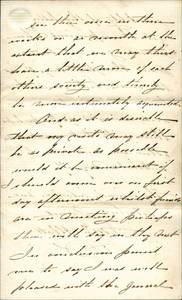 in this once in three
weeks or a month at the
interest that we may thus
have a little more of each
others society and
be more intimately acquainted
And as it is desirable
that my visits may still
be as private as possible
would it be convenient if
I should come on first
day afternoons whilst friends
are in meeting perhaps
thee will say in thy next
In conclusion permit
me to say I was well
pleased with the general